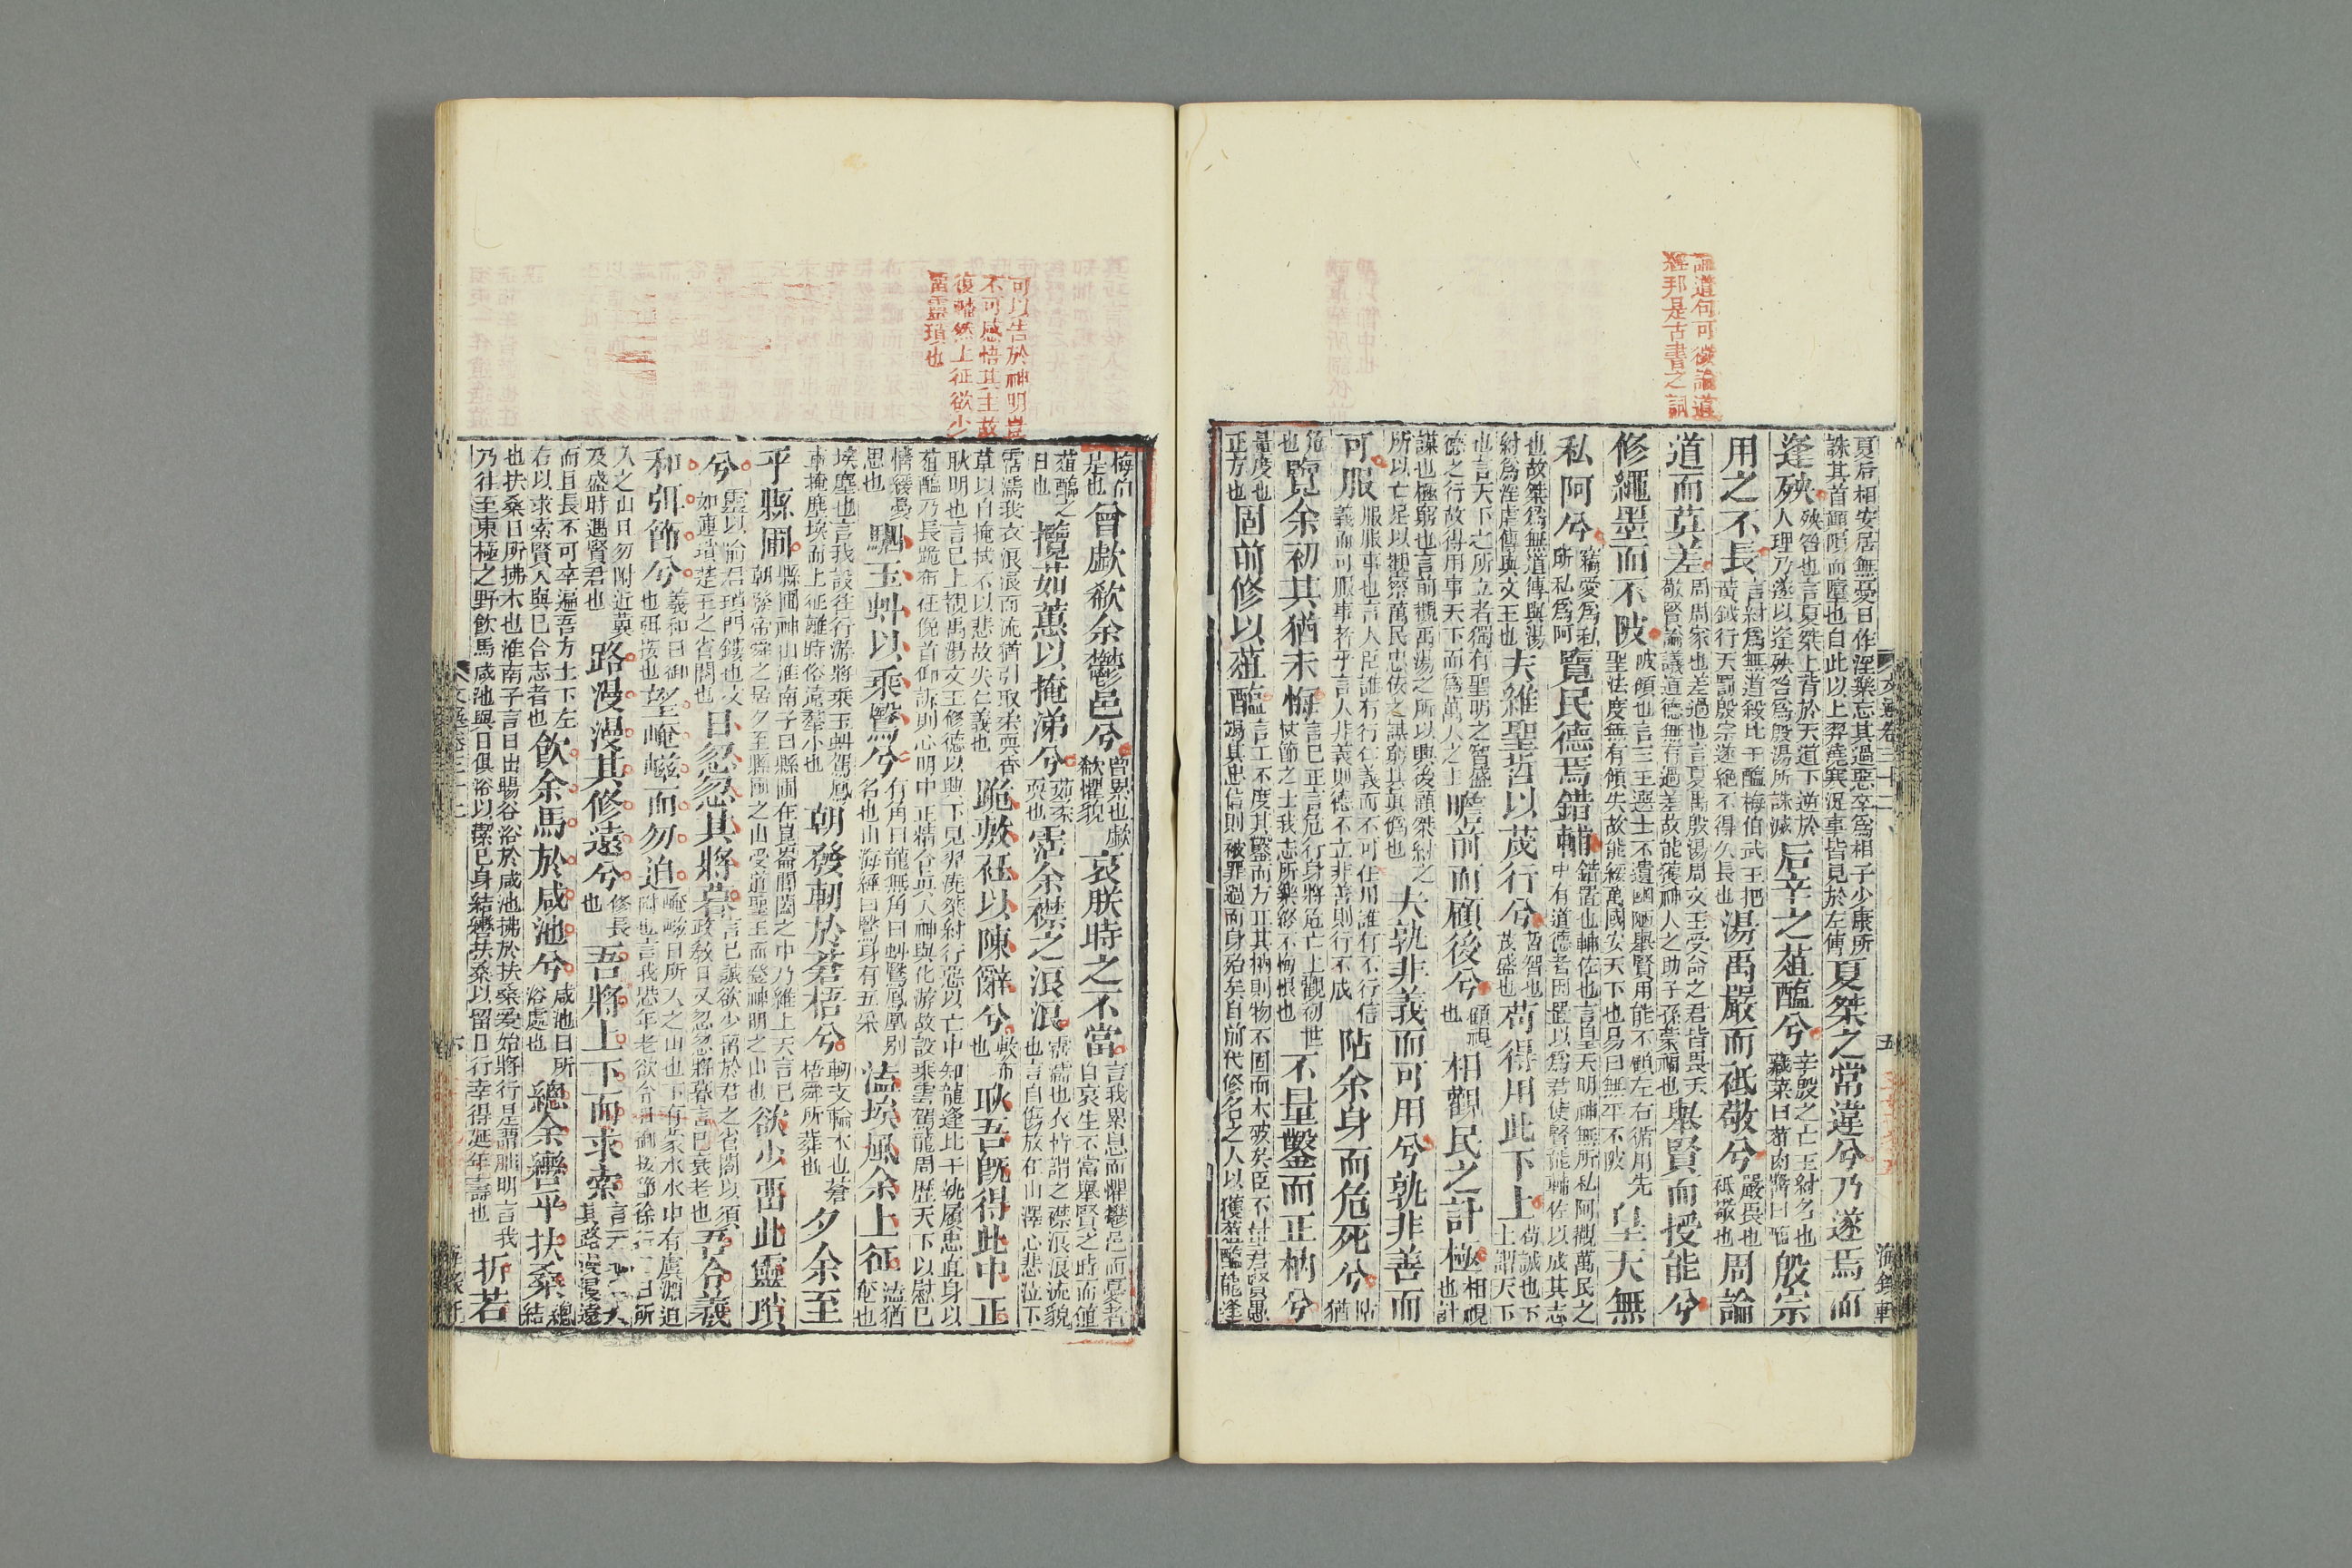 論道句可徵論道
經邦是古書之詞
夏后相安居無憂日作淫樂忘其過惡卒爲相子少康所
誅其首顚隕而墮也自此以上羿澆寒浞事皆見於左傳
夏桀之常違兮乃遂焉而
逢殃
殃咎也言夏桀上背於天道下逆於
人理乃遂以逢殃咎爲殷湯所誅滅
后辛之葅醢兮
辛殷之亡王紂名也
藏菜曰葅肉醬曰醢
殷宗
用之不長
言紂爲無道殺比干醢梅伯武王把
黃鉞行天罰殷宗遂絶不得久長也
湯禹嚴而祗敬兮
嚴畏也
祗敬也
周論
道而莫差
周周家也差過也言夏禹殷湯周文王受命之君皆畏天
敬賢論議道德無有過差故能獲神人之助子孫蒙福也
舉賢而授能兮
修繩墨而不陂
陂傾也言三王選士不遺幽陋舉賢用能不顧左右循用先
聖法度無有傾失故能綏萬國安天下也易曰無平不陂
皇天無
私阿兮
竊愛爲私
所私爲阿
覽民德焉錯輔
錯置也輔佐也言皇天明神無所私阿觀萬民之
中有道德者因置以爲君使賢能輔佐以成其志
也故桀爲無道傳與湯
紂爲淫虐傳與文王也
夫維聖哲以茂行兮
哲智也
茂盛也
苟得用此下土
苟誠也下
土謂天下
也言天下之所立者獨有聖明之智盛
德之行故得用事天下而爲萬人之主
瞻前而顧後兮
顧視
也
相觀民之計極
相視
也計
謀也極窮也言前觀禹湯之所以興後顧桀紂之
所以亡足以觀察萬民忠佞之謀窮其眞僞也
夫孰非義而可用兮孰非善而
可服
服服事也言人臣誰有行仁義而不可任用誰有不行信
義而可服事者乎言人非義則德不立非善則行不成
阽余身而危死兮
阽猶
危
也
覽余初其猶未悔
言己正言危行身將危亡上觀初世
伏節之士我志所樂終不悔恨也
不量鑿而正枘兮
量度也
正方也
固前修以葅醢
言工不度其鑿而方正其枘則物不固而木破矣臣不量君賢愚
竭其忠信則被罪過而身殆矣自前代修名之人以獲葅醢龍逢
文選卷三十二
五
海録軒
可以告於神明豈
不可感悟其主故
復皭然上征欲少
留靈瑣也
梅伯
是也
曾歔欷余鬱邑兮
曾累也歔
欷懼貌
哀朕時之不當
言我累息而懼鬱邑而憂者
自哀生不當舉賢之時而値
葅醢之
日也
攬茹蕙以掩涕兮
茹柔
耎也
霑余襟之浪浪
霑濡也衣眥謂之襟浪浪流貌
也言自傷放在山澤心悲泣下
霑濡我衣浪浪而流猶引取柔耎香
草以自掩拭不以悲故失仁義也
跪敷衽以陳辭兮
敷布
也
耿吾旣得此中正
耿明也言己上覩禹湯文王修德以興下見羿澆桀紂行惡以亡中知龍逢比干執履忠直身以
葅醢乃長跪布衽俛首仰訴則心明中正精合眞人神與化游故設乘雲駕龍周歷天下以慰己
情緩憂
思也
駟玉虯以乘鷖兮
有角曰龍無角曰虯鷖鳳凰別
名也山海經曰鷖身有五采
溘埃風余上征
溘猶
奄也
埃塵也言我設往行游將乘玉虯駕鳳
車掩塵埃而上征離時俗遠羣小也
朝發軔於蒼梧兮
軔支輪木也蒼
梧舜所葬也
夕余至
乎縣圃
縣圃神山淮南子曰縣圃在崑崙閶闔之中乃維上天言己
朝發帝舜之居夕至縣圃之山受道聖王而登神明之山也
欲少留此靈瑣
兮
靈以喻君瑣門鏤也文
如連瑣楚王之省閣也
日忽忽其將暮
言己誠欲少留於君之省閣以須
政敎日又忽忽將暮言己衰老也
吾令羲
和弭節兮
羲和日御
也弭按也
望崦嵫而勿迫
崦嵫日所入之山也下有蒙水水中有虞淵迫
附也言我恐年老欲令日御按節徐行望日所
入之山且勿附近冀
及盛時遇賢君也
路漫漫其修遠兮
修長
也
吾將上下而求索
言天地廣大
其路漫漫遠
而且長不可卒遍吾方上下左
右以求索賢人與己合志者也
飮余馬於咸池兮
咸池日所
浴處也
總余轡乎扶桑
總
結
也扶桑日所拂木也淮南子言日出暘谷浴於咸池拂於扶桑爰始將行是謂朏明言我
乃往至東極之野飮馬咸池與日俱浴以潔己身結轡扶桑以留日行幸得延年壽也
折若
文選卷三十二
六
海録軒